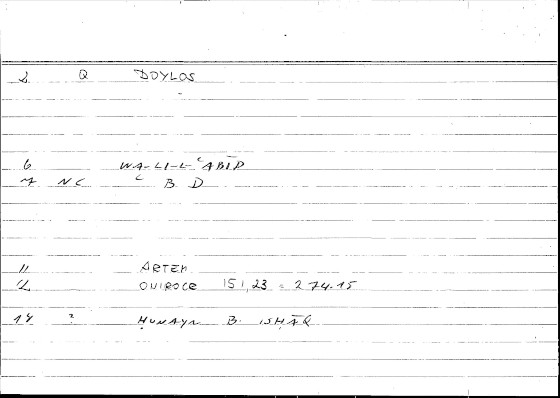 2 Q DOYLOS
6 WA-LI-L-ʿABĪD
7 NC ʿ B D
11 ARTEM
12 OUIROCE 151,23 = 274.15
14 ? ḤUNAYN B. ISḤĀQ